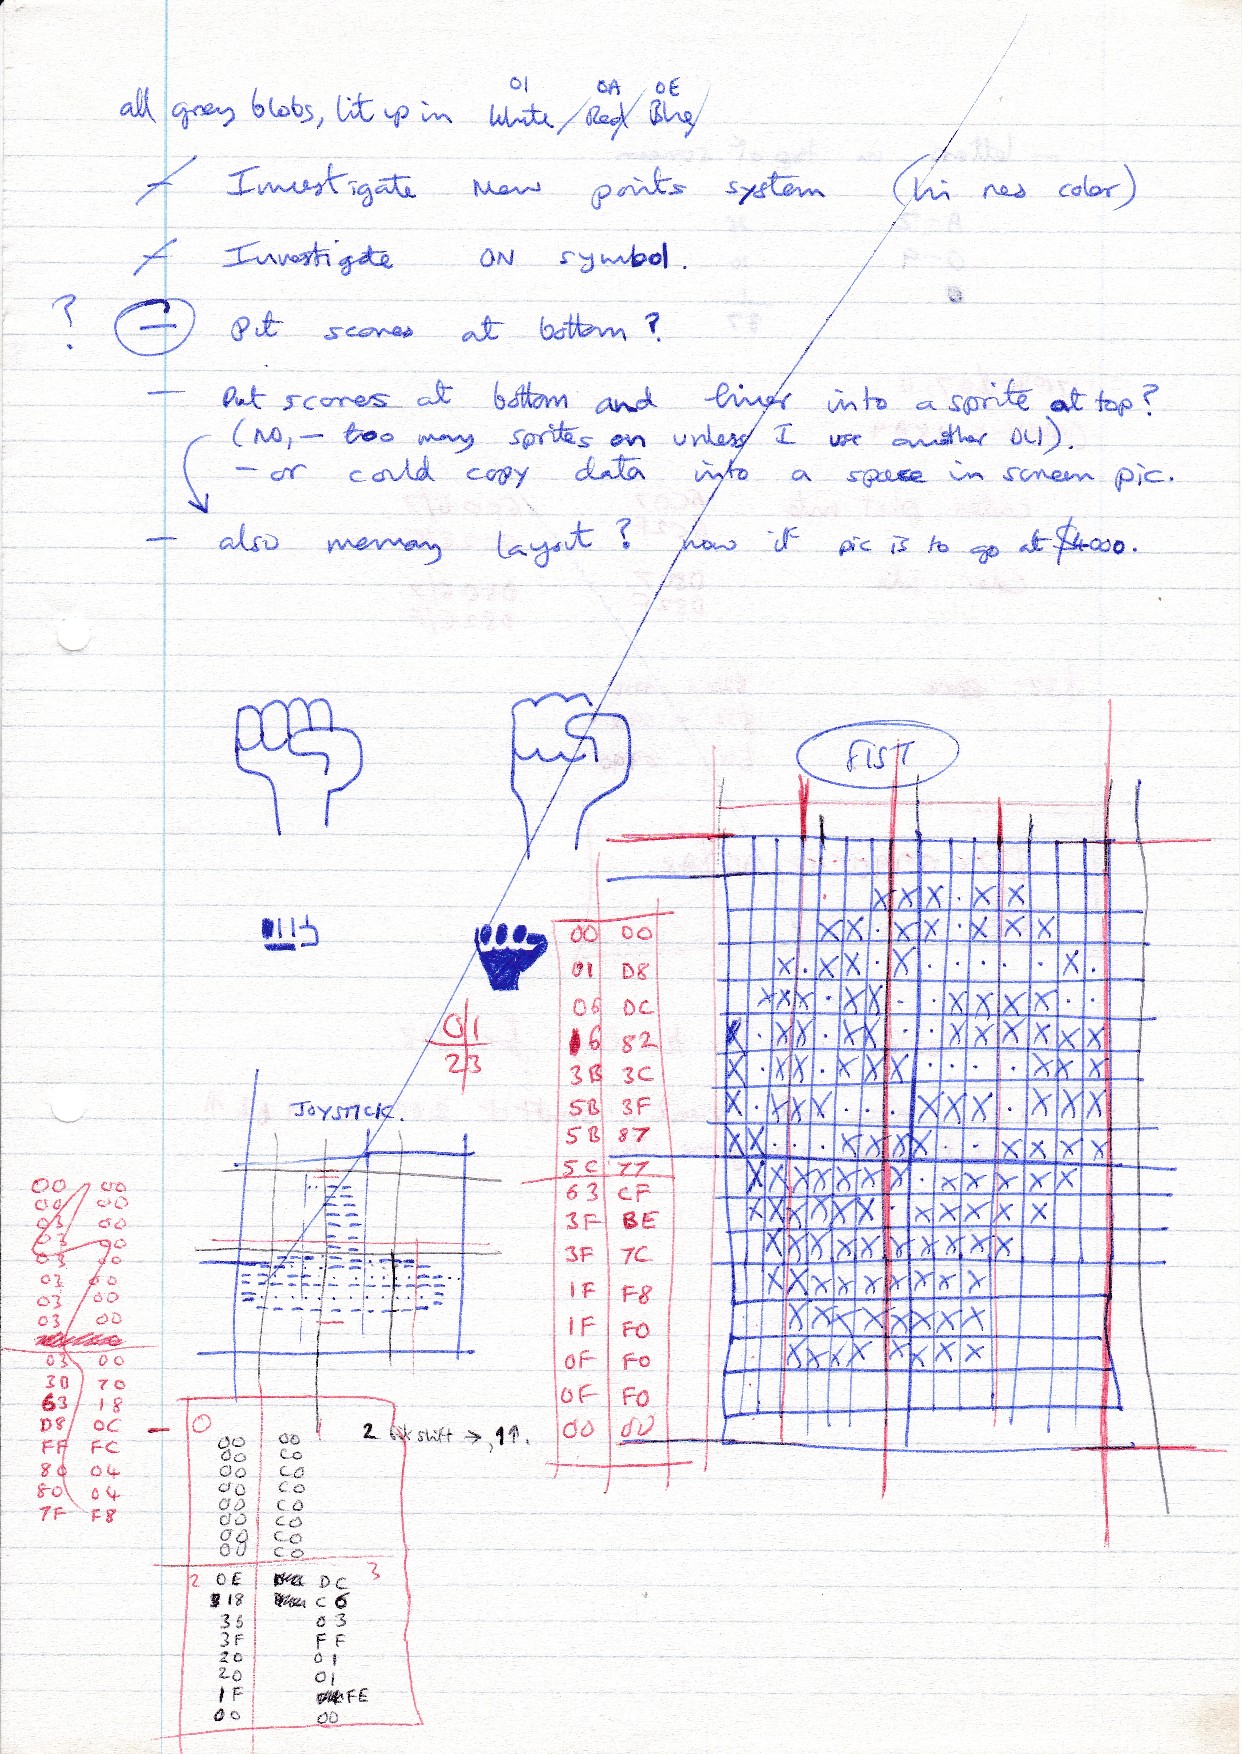 01 0A 0E
all grey blobs, lit up in White/Red/Blue/
- Investigate New points system (hi res color)
- Investigate ON symbol.
? - Put scores at bottom?
- Put scores at bottom and timer into a sprite at top?
(NO, - too many sprites on unless I use another DLI).
- or could copy data into a space in screen pic.
- also memory layout? now if pic is to go at $4000.
FIST
00 00
01 D8
06 DC
6 82
3B 3C
5B 3F
5B 87
5C 77
63 CF
3F BE
3F 7C
1F F8
1F F0
0F F0
0F F0
00 00
01
23
JOYSTICK.
00 00
00 00
03 00
03 00
03 00
03 00
03 00
03 00
03 00
30 70
63 18
D8 0C
FF FC
80 04
80 04
7F F8
2 bit shift →, 1↑.
0
00 00
00 C0
00 C0
00 C0
00 C0
00 C0
00 C0
00 C0
2 3
0E DC
18 C6
36 03
3F FF
20 01
20 01
1F FE
00 00